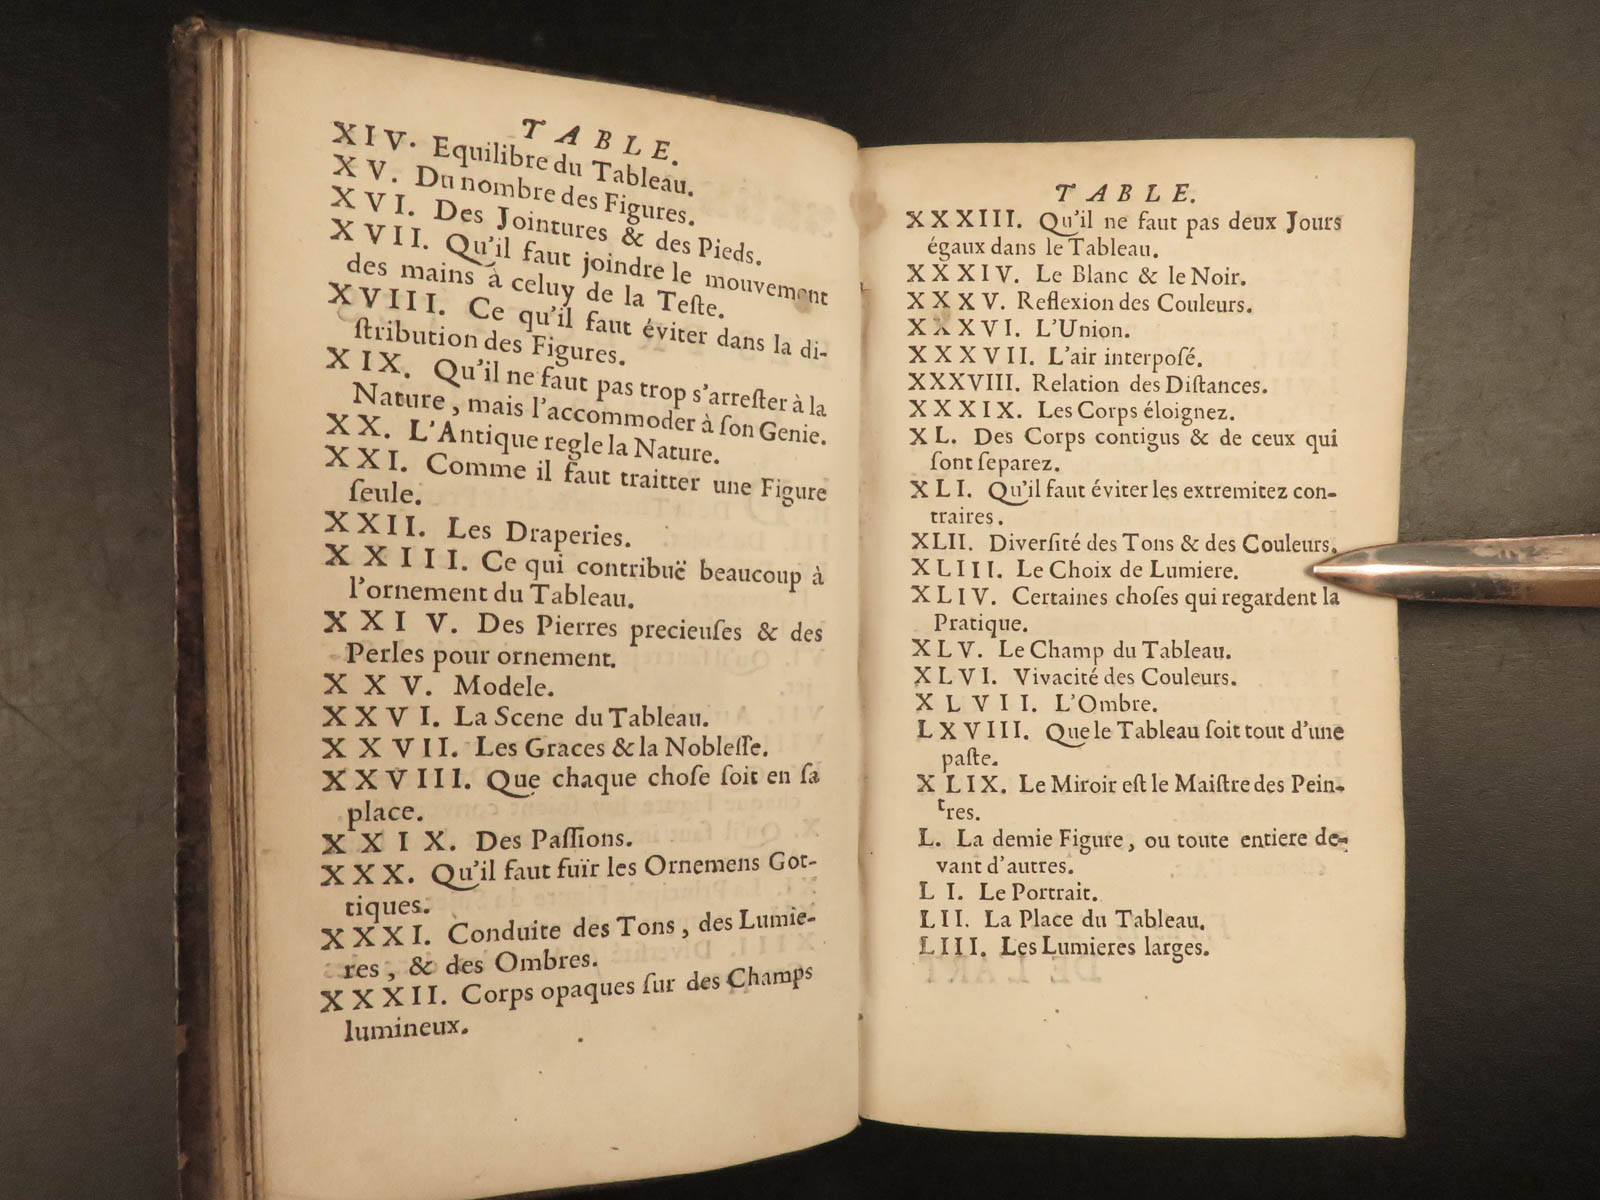 TABLE.
XIV. Equilibre du Tableau.
XV. Du nombre des Figures.
XVI. Des Jointures & des Pieds.
XVII. Qu'il faut joindre le mouvement
des mains à celuy de la Teſte.
XVIII. Ce qu'il faut éviter dans la di-
ſtribution des Figures.
XIX. Qu'il ne faut pas trop s'arreſter à la
Nature, mais l'accommoder à ſon Genie.
XX. L'Antique regle la Nature.
XXI. Comme il faut traitter une Figure
ſeule.
XXII. Les Draperies.
XXIII. Ce qui contribuë beaucoup à
l'ornement du Tableau.
XXIV. Des Pierres precieuſes & des
Perles pour ornement.
XXV. Modele.
XXVI. La Scene du Tableau.
XXVII. Les Graces & la Nobleſſe.
XXVIII. Que chaque choſe ſoit en ſa
place.
XXIX. Des Paſſions.
XXX. Qu'il faut fuïr les Ornemens Got-
tiques.
XXXI. Conduite des Tons, des Lumie-
res, & des Ombres.
XXXII. Corps opaques ſur des Champs
lumineux.
TABLE.
XXXIII. Qu'il ne faut pas deux Jours
égaux dans le Tableau.
XXXIV. Le Blanc & le Noir.
XXXV. Reflexion des Couleurs.
XXXVI. L'Union.
XXXVII. L'air interpoſé.
XXXVIII. Relation des Diſtances.
XXXIX. Les Corps éloignez.
XL. Des Corps contigus & de ceux qui
ſont ſeparez.
XLI. Qu'il faut éviter les extremitez con-
traires.
XLII. Diverſité des Tons & des Couleurs.
XLIII. Le Choix de Lumiere.
XLIV. Certaines choſes qui regardent la
Pratique.
XLV. Le Champ du Tableau.
XLVI. Vivacité des Couleurs.
XLVII. L'Ombre.
LXVIII. Que le Tableau ſoit tout d'une
paſte.
XLIX. Le Miroir eſt le Maiſtre des Pein-
tres.
L. La demie Figure, ou toute entiere de-
vant d'autres.
LI. Le Portrait.
LII. La Place du Tableau.
LIII. Les Lumieres larges.